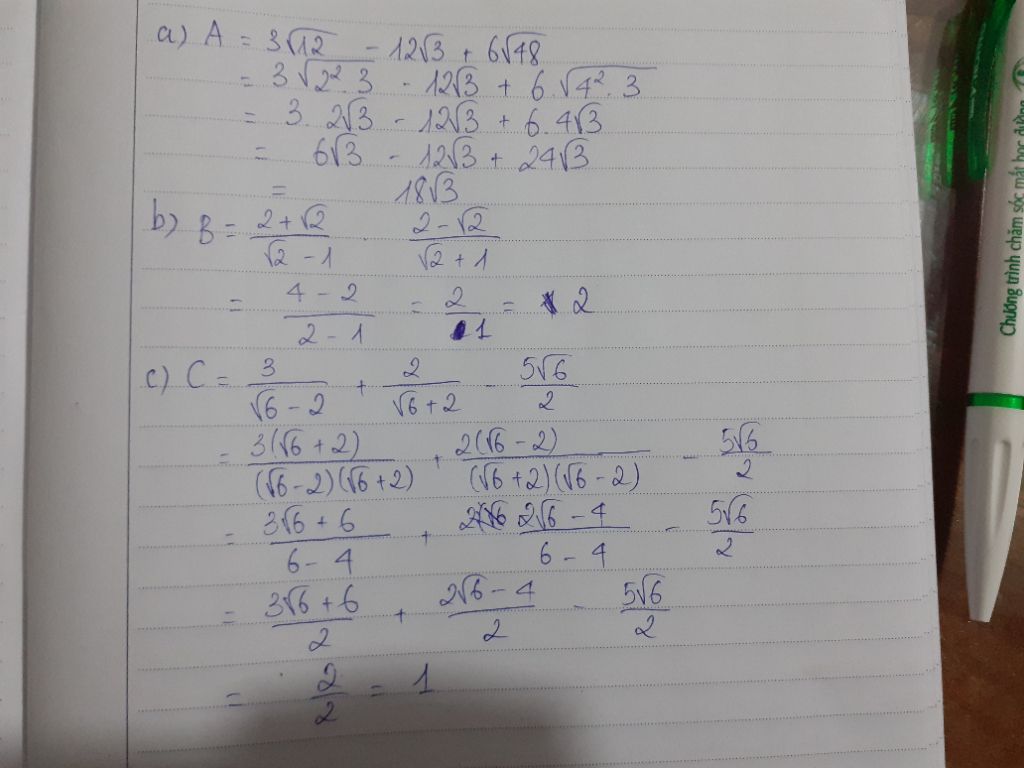 a) A = 3√12 - 12√3 + 6√48
= 3√2².3 - 12√3 + 6.√4².3
= 3.2√3 - 12√3 + 6.4√3
= 6√3 - 12√3 + 24√3
= 18√3
b) B = (2+√2)/(√2-1) . (2-√2)/(√2+1)
= (4-2)/(2-1) = 2/1 = 2
c) C = 3/(√6-2) + 2/(√6+2) - 5√6/2
= 3(√6+2)/((√6-2)(√6+2)) + 2(√6-2)/((√6+2)(√6-2)) - 5√6/2
= (3√6+6)/(6-4) + (2√6-4)/(6-4) - 5√6/2
= (3√6+6)/2 + (2√6-4)/2 - 5√6/2
= 2/2 = 1
Chương trình chăm sóc mắt học đường